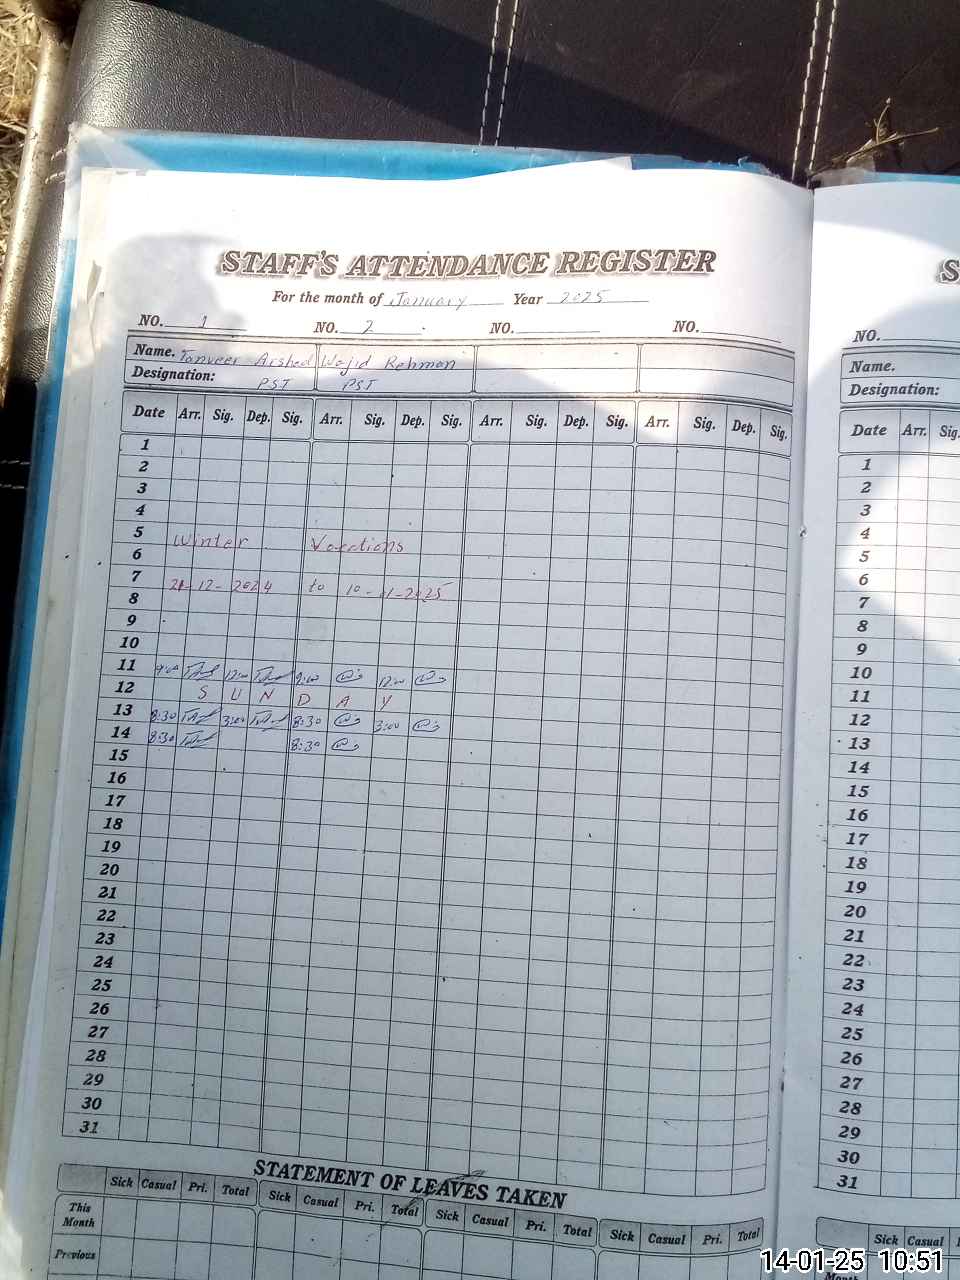 STAFF'S ATTENDANCE REGISTER
For the month of January Year 2025
NO. 1 NO. 2 NO. NO.
Name. Tanveer Arshed Wajid Rehman
Designation: PST PST
Date Arr. Sig. Dep. Sig. Arr. Sig. Dep. Sig. Arr. Sig. Dep. Sig. Arr. Sig. Dep. Sig.
1
2
3
4
5
Winter Vacations
6
7
21-12-2024 to 10-01-2025
8
9
10
11 9:00 12:00 9:00 12:00
12 S U N D A Y
13 8:30 3:00 8:30 3:00
14 8:30 8:30
15
16
17
18
19
20
21
22
23
24
25
26
27
28
29
30
31
STATEMENT OF LEAVES TAKEN
Sick Casual Pri. Total Sick Casual Pri. Total Sick Casual Pri. Total Sick Casual Pri. Total
This
Month
Previous
S
NO.
Name.
Designation:
Date Arr. Sig.
1
2
3
4
5
6
7
8
9
10
11
12
13
14
15
16
17
18
19
20
21
22
23
24
25
26
27
28
29
30
31
Sick Casual
Month
14-01-25 10:51